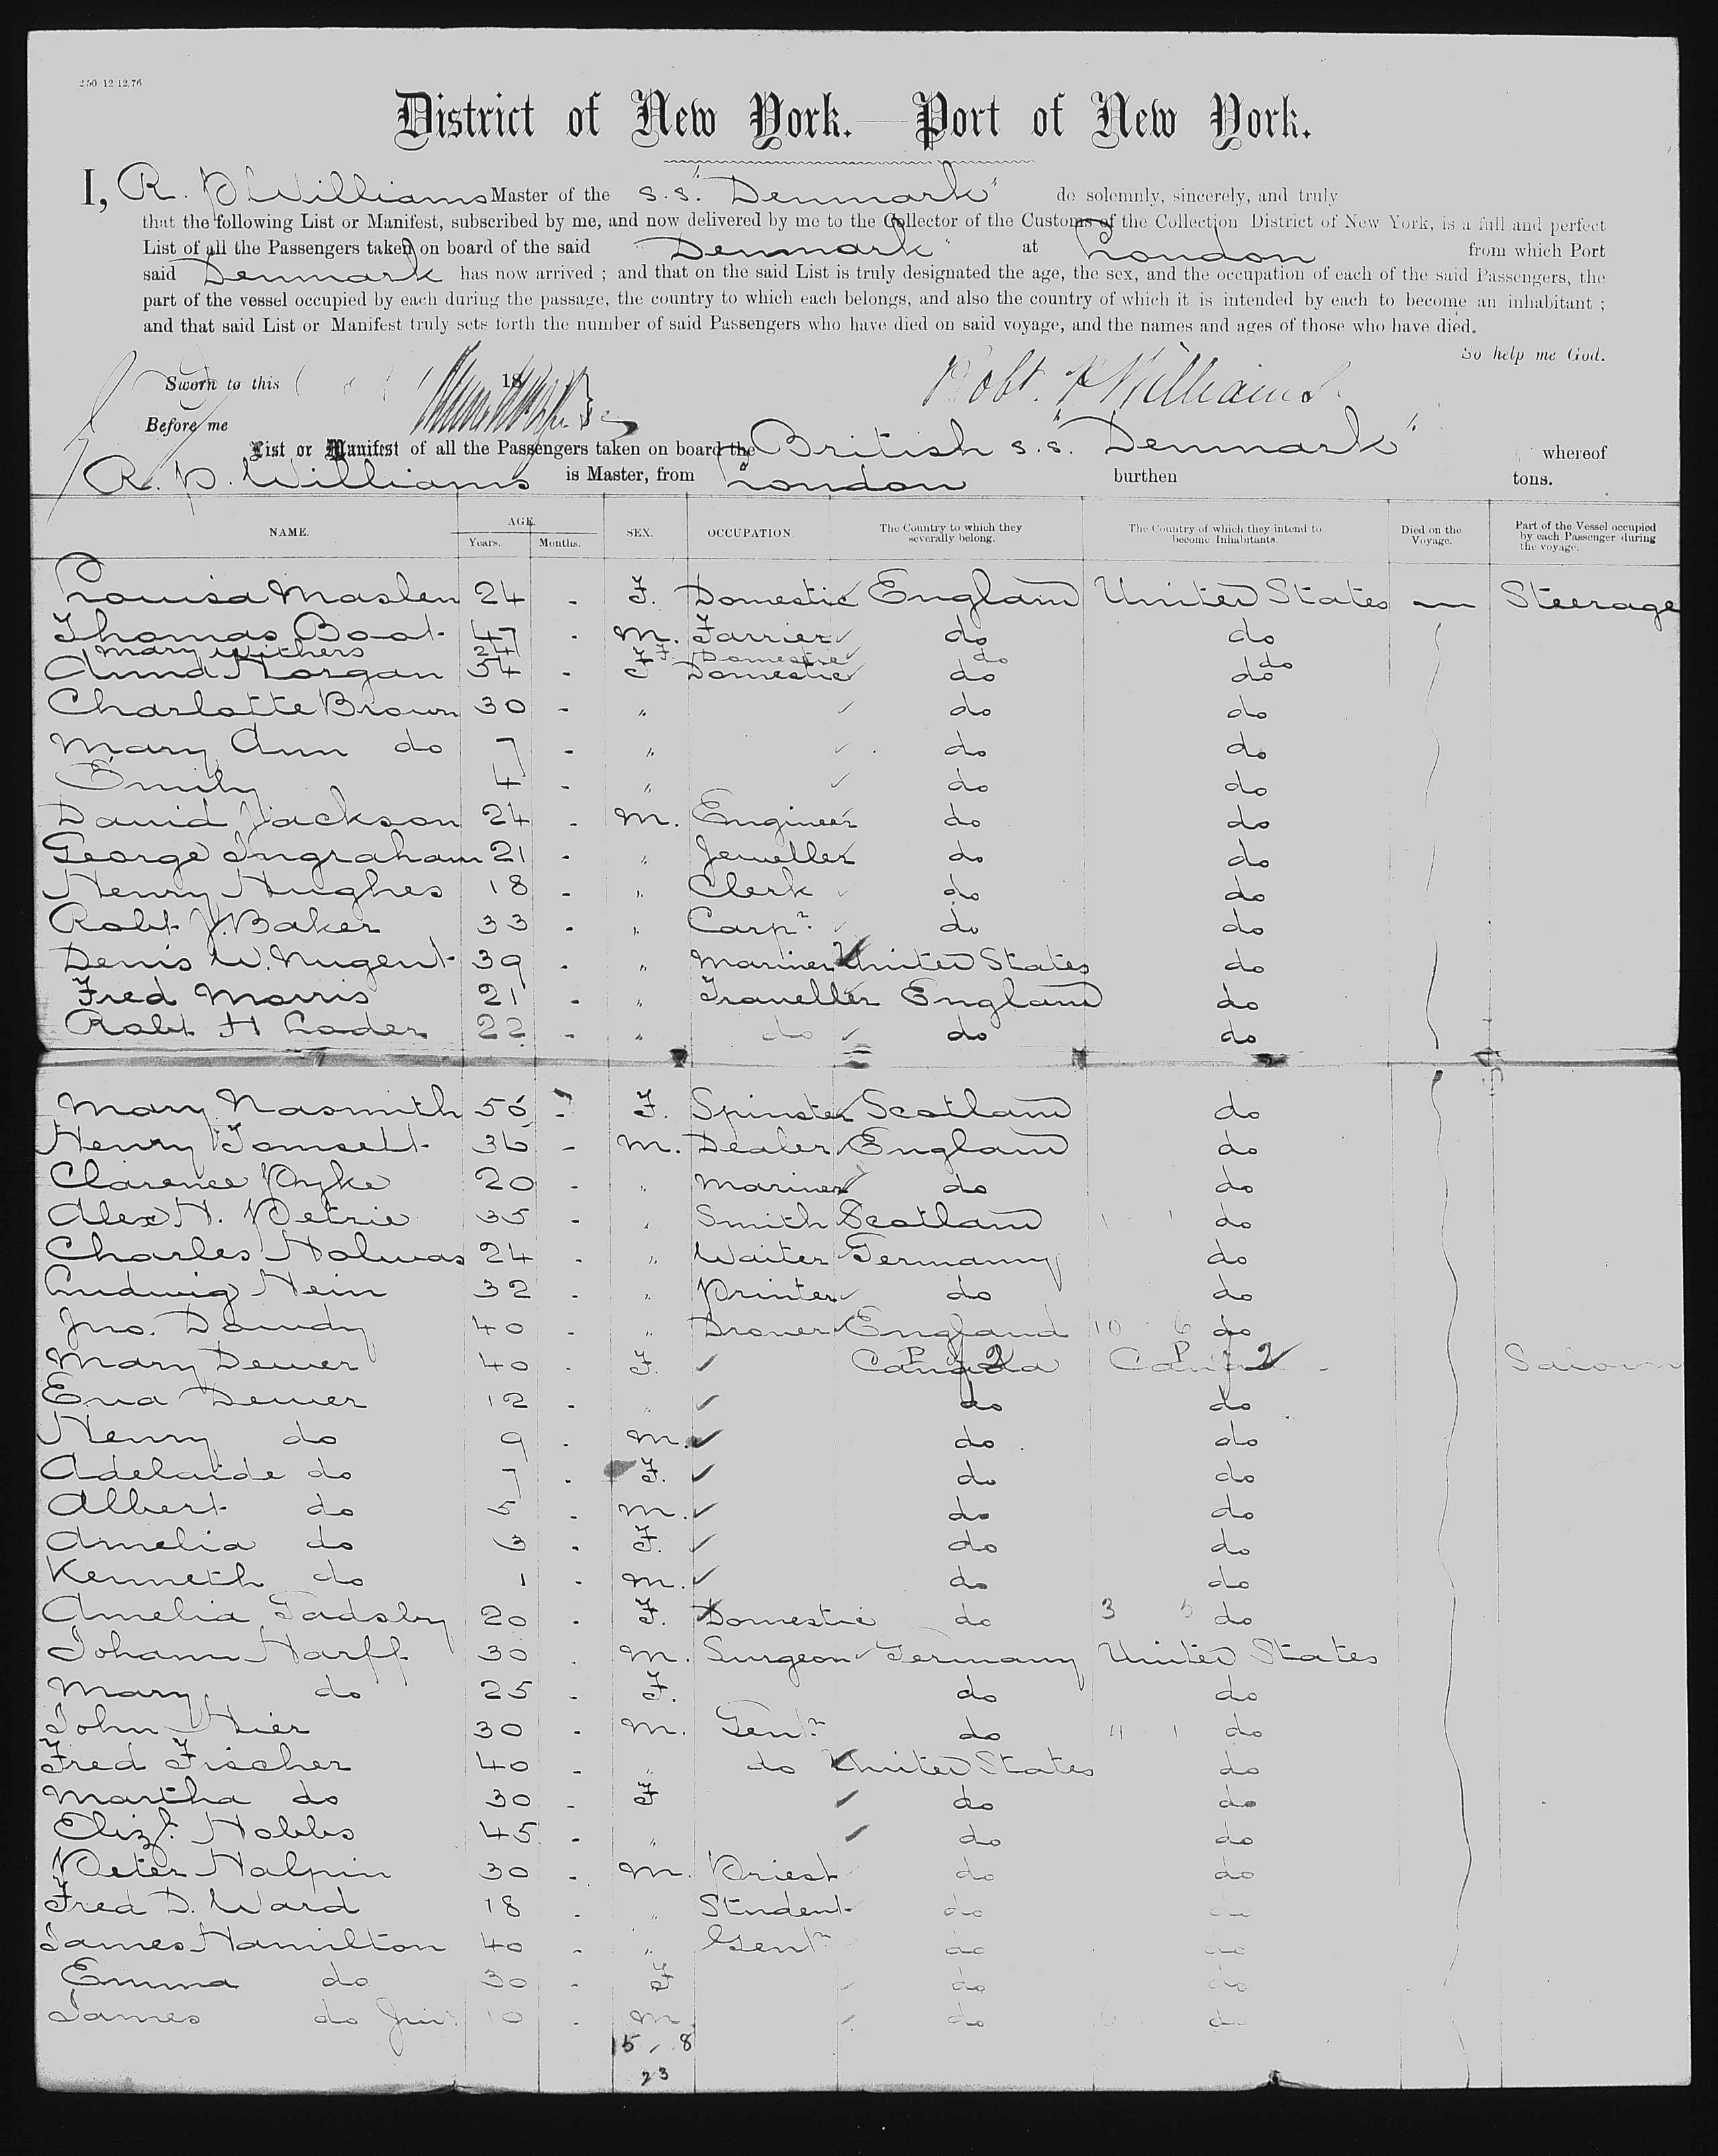 250 12 12.76
District of New York. — Port of New York.
I, R. P Williams Master of the S.S. "Denmark" do solemnly, sincerely, and truly
that the following List or Manifest, subscribed by me, and now delivered by me to the Collector of the Customs of the Collection District of New York, is a full and perfect
List of all the Passengers taken on board of the said "Denmark" at London from which Port
said Denmark has now arrived ; and that on the said List is truly designated the age, the sex, and the occupation of each of the said Passengers, the
part of the vessel occupied by each during the passage, the country to which each belongs, and also the country of which it is intended by each to become an inhabitant ;
and that said List or Manifest truly sets forth the number of said Passengers who have died on said voyage, and the names and ages of those who have died.
So help me God.
Sworn to this 18
Robt. P Williams
Before me
List or Manifest of all the Passengers taken on board the British S.S. "Denmark" whereof
R. P. Williams is Master, from London burthen tons.
NAME. AGE. Years. Months. SEX. OCCUPATION. The Country to which they severally belong. The Country of which they intend to become Inhabitants. Died on the Voyage. Part of the Vessel occupied by each Passenger during the voyage.
Louisa Maslen 24 - F. Domestic England United States — Steerage
Thomas Boot 47 - M. Farrier do do
Mary Withers 24 F. Domestic do do
Anna Morgan 54 - F Domestic do do
Charlotte Brown 30 - " do do
Mary Ann do 7 - " do do
Emily 4 - " do do
David Jackson 24 - M. Engineer do do
George Ingraham 21 - " Jeweller do do
Henry Hughes 18 - " Clerk do do
Robt J. Baker 33 - " Carpr do do
Denis W. Nugent 39 - " Mariner United States do
Fred Morris 21 - " Traveller England do
Robt H Loder 22 - " do do do
Mary Nasmith 56 - F. Spinster Scotland do
Henry Tomsett 36 - M. Dealer England do
Clarence Pyke 20 - " Mariner do do
Alex H. Petrie 35 - " Smith Scotland do
Charles Holwas 24 - " Waiter Germany do
Ludwig Hein 32 - " Printer do do
Jno. Dowdy 40 - " Drover England 10 6 do
Mary Dewer 40 - F. Canada 2 Canada 2 Saloon
Eva Dewer 12 - " do do
Henry do 9 - M. do do
Adelaide do 7 - F. do do
Albert do 5 - M. do do
Amelia do 3 - F. do do
Kenneth do 1 - M. do do
Amelia Tadsby 20 - F. Domestic do 3 5 do
Johann Harff 30 - M. Surgeon Germany United States
Mary do 25 - F. do do
John Hier 30 - M. Gentn do 11 1 do
Fred Fischer 40 - " do United States do
Martha do 30 - F do do
Elizt. Hobbs 45 - " do do
Peter Halpin 30 - M. Priest do do
Fred D. Ward 18 - " Student do do
James Hamilton 40 - " Gentn do do
Emma do 30 - F do do
James do Junr 10 - M. do do
15 - 8
23